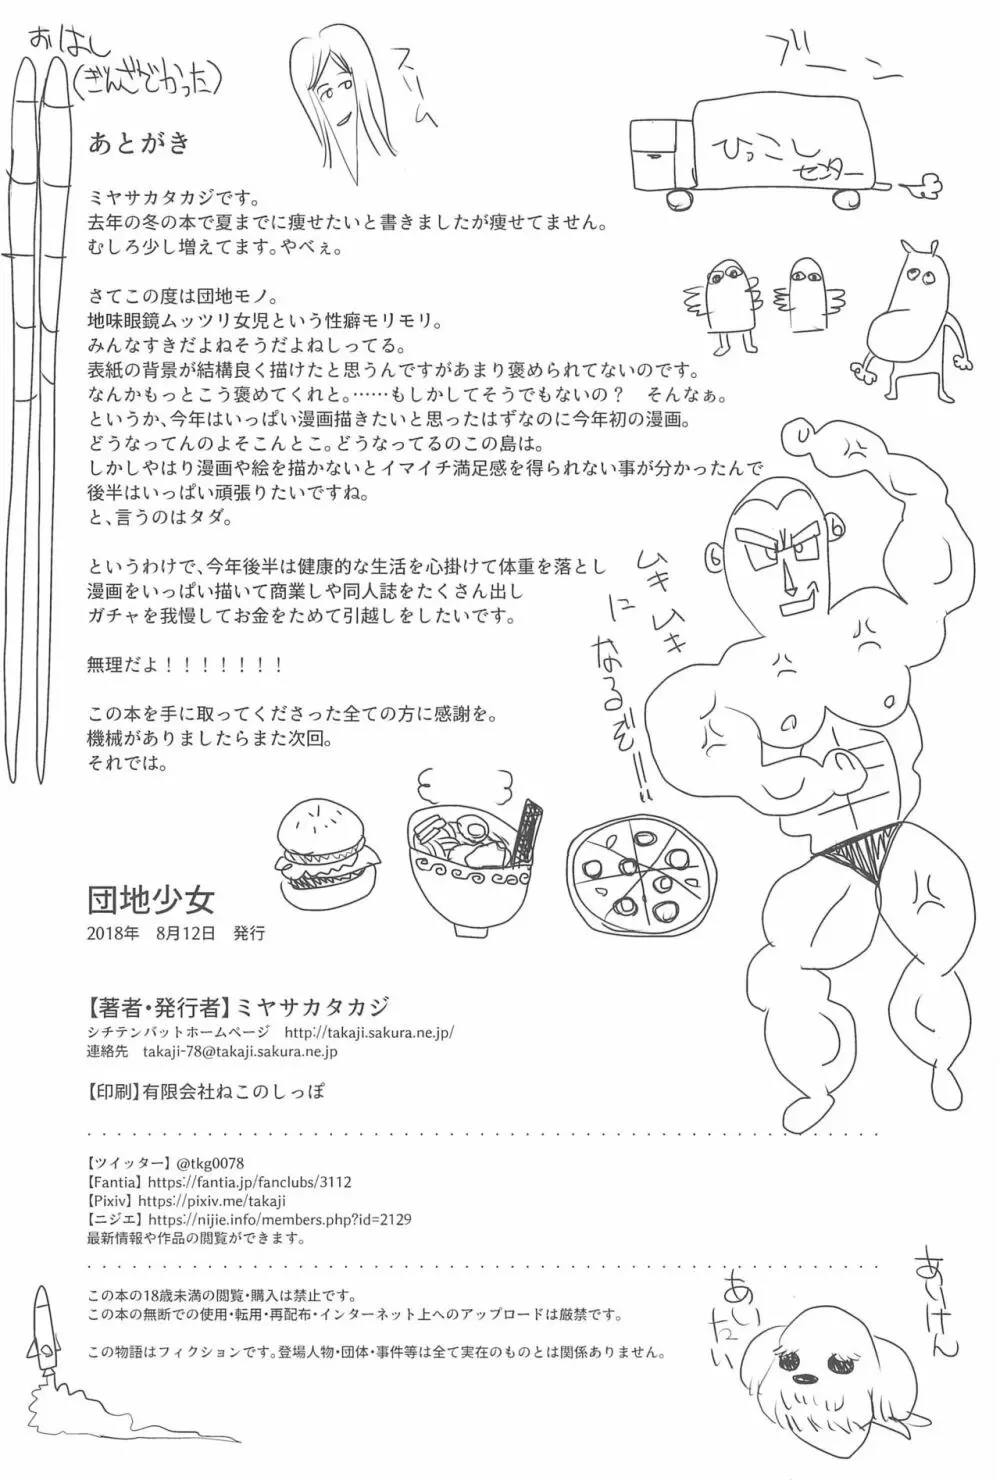 おはし
(ぎんざでかった)
スリム
ブーン
ひっこし
センター
あとがき
ミヤサカタカジです。
去年の冬の本で夏までに痩せたいと書きましたが痩せてません。
むしろ少し増えてます。やべぇ。
さてこの度は団地モノ。
地味眼鏡ムッツリ女児という性癖モリモリ。
みんなすきだよねそうだよねしってる。
表紙の背景が結構良く描けたと思うんですがあまり褒められてないのです。
なんかもっとこう褒めてくれと。……もしかしてそうでもないの?　そんなぁ。
というか、今年はいっぱい漫画描きたいと思ったはずなのに今年初の漫画。
どうなってんのよそこんとこ。どうなってるのこの島は。
しかしやはり漫画や絵を描かないとイマイチ満足感を得られない事が分かったんで
後半はいっぱい頑張りたいですね。
と、言うのはタダ。
というわけで、今年後半は健康的な生活を心掛けて体重を落とし
漫画をいっぱい描いて商業しや同人誌をたくさん出し
ガチャを我慢してお金をためて引越しをしたいです。
無理だよ！！！！！！！
この本を手に取ってくださった全ての方に感謝を。
機械がありましたらまた次回。
それでは。
ムキムキ
になるぞ!!
団地少女
2018年　8月12日　発行
【著者・発行者】ミヤサカタカジ
シチテンバットホームページ　http://takaji.sakura.ne.jp/
連絡先　takaji-78@takaji.sakura.ne.jp
【印刷】有限会社ねこのしっぽ
【ツイッター】 @tkg0078
【Fantia】 https://fantia.jp/fanclubs/3112
【Pixiv】 https://pixiv.me/takaji
【ニジエ】 https://nijie.info/members.php?id=2129
最新情報や作品の閲覧ができます。
この本の18歳未満の閲覧・購入は禁止です。
この本の無断での使用・転用・再配布・インターネット上へのアップロードは厳禁です。
この物語はフィクションです。登場人物・団体・事件等は全て実在のものとは関係ありません。
あいけん
あいたい